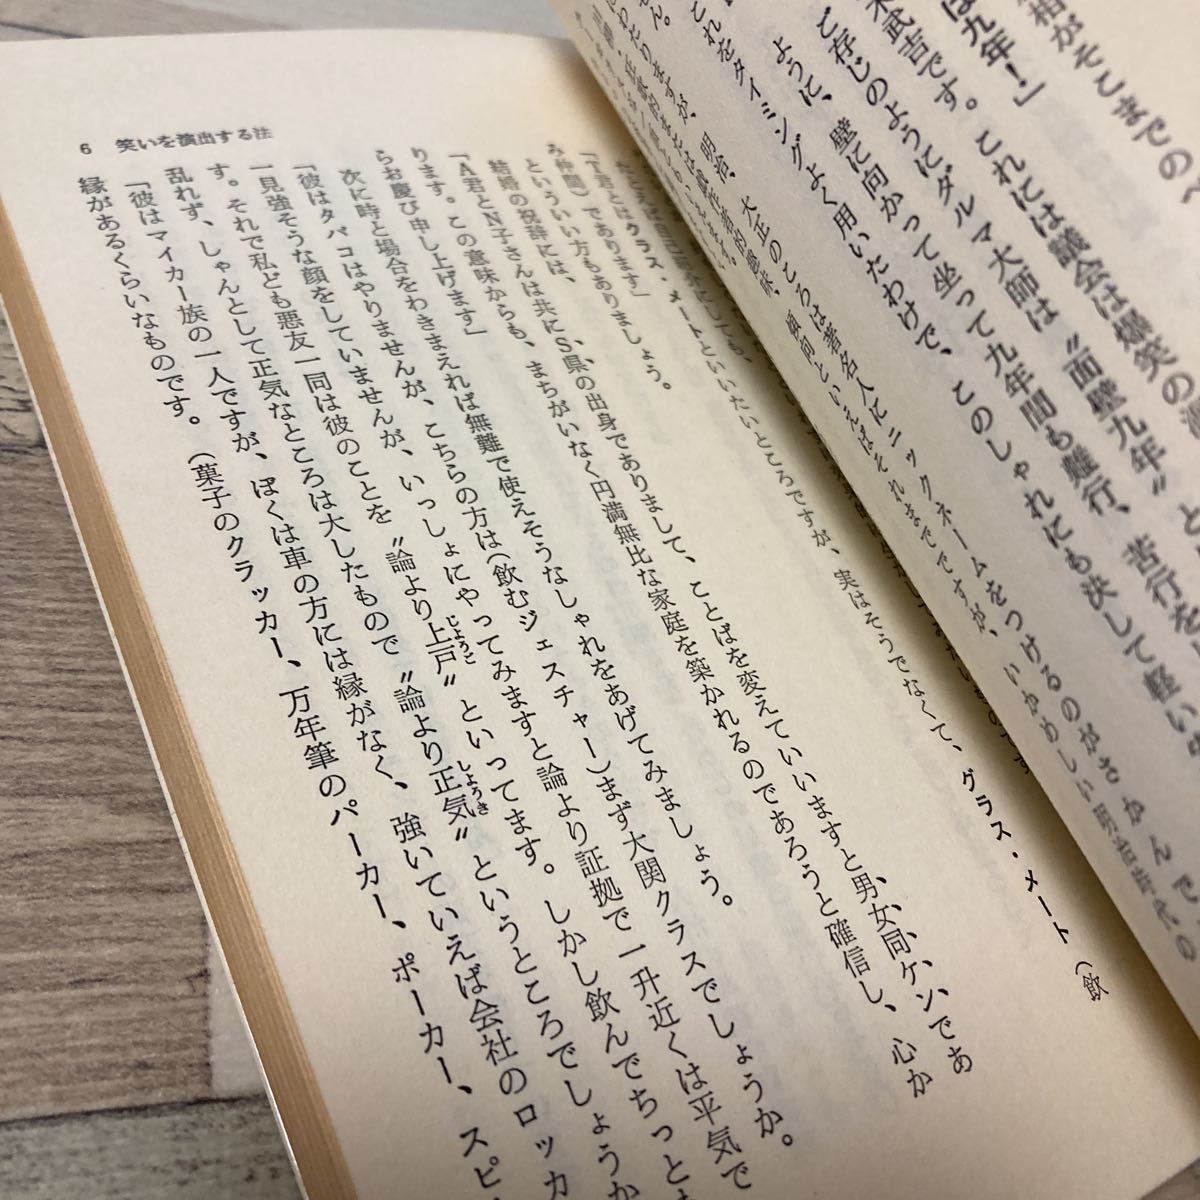 相がそこまでのく
は九年！」
木武吉です。これには議会は爆笑の
ご存じのようにダルマ大師は〝面壁九年〟と
ように、壁に向かって坐って九年間も難行、苦行を
これをタイミングよく用いたわけで、このしゃれにも決して軽い
ん。
明治、大正のころは著名人にニックネームをつけるのがさかんで、
わたりますが、
傾向といえばそれまでですが、いかめしい明治時代の
たとえば自己紹介にしても、
「T君とはクラス・メートといいたいところですが、実はそうでなくて、グラス・メート（飲
み仲間）であります」
といういい方もありましょう。
結婚の祝辞には、
「A君とN子さんは共にS県の出身でありまして、ことばを変えていいますと男女同ケンであ
ります。この意味からも、まちがいなく円満無比な家庭を築かれるのであろうと確信し、心か
らお慶び申し上げます」
次に時と場合をわきまえれば無難で使えそうなしゃれをあげてみましょう。
「彼はタバコはやりませんが、こちらの方は（飲むジェスチャー）まず大関クラスでしょうか。
一見強そうな顔をしていませんが、いっしょにやってみますと論より証拠で一升近くは平気で
す。それで私ども悪友一同は彼のことを〝論より上戸じょうご〟といってます。しかし飲んでちっと
乱れず、しゃんとして正気なところは大したもので〝論より正気しょうき〟というところでしょうか
「彼はマイカー族の一人ですが、ぼくは車の方には縁がなく、強いていえば会社のロッカ
縁があるくらいなものです。（菓子のクラッカー、万年筆のパーカー、ポーカー、スピ
6 笑いを演出する法